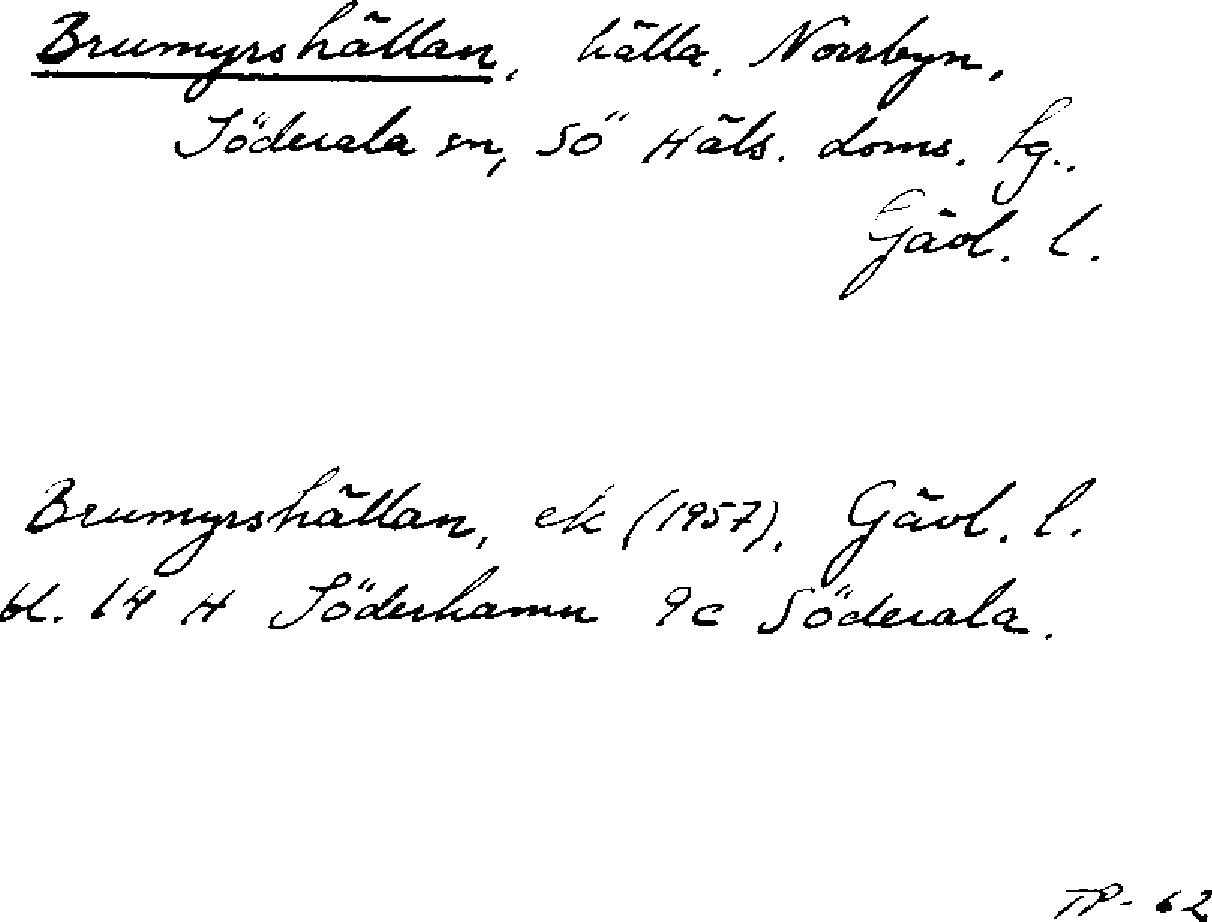 Brumyrshällan, hälla, Norrbyn,
Söderala sn, SÖ Häls. doms. fg.,
Gävl. l.
Brumyrshällan, ek (1957), Gävl. l.
bl. 14 H Söderhamn 9c Söderala.
TP-62